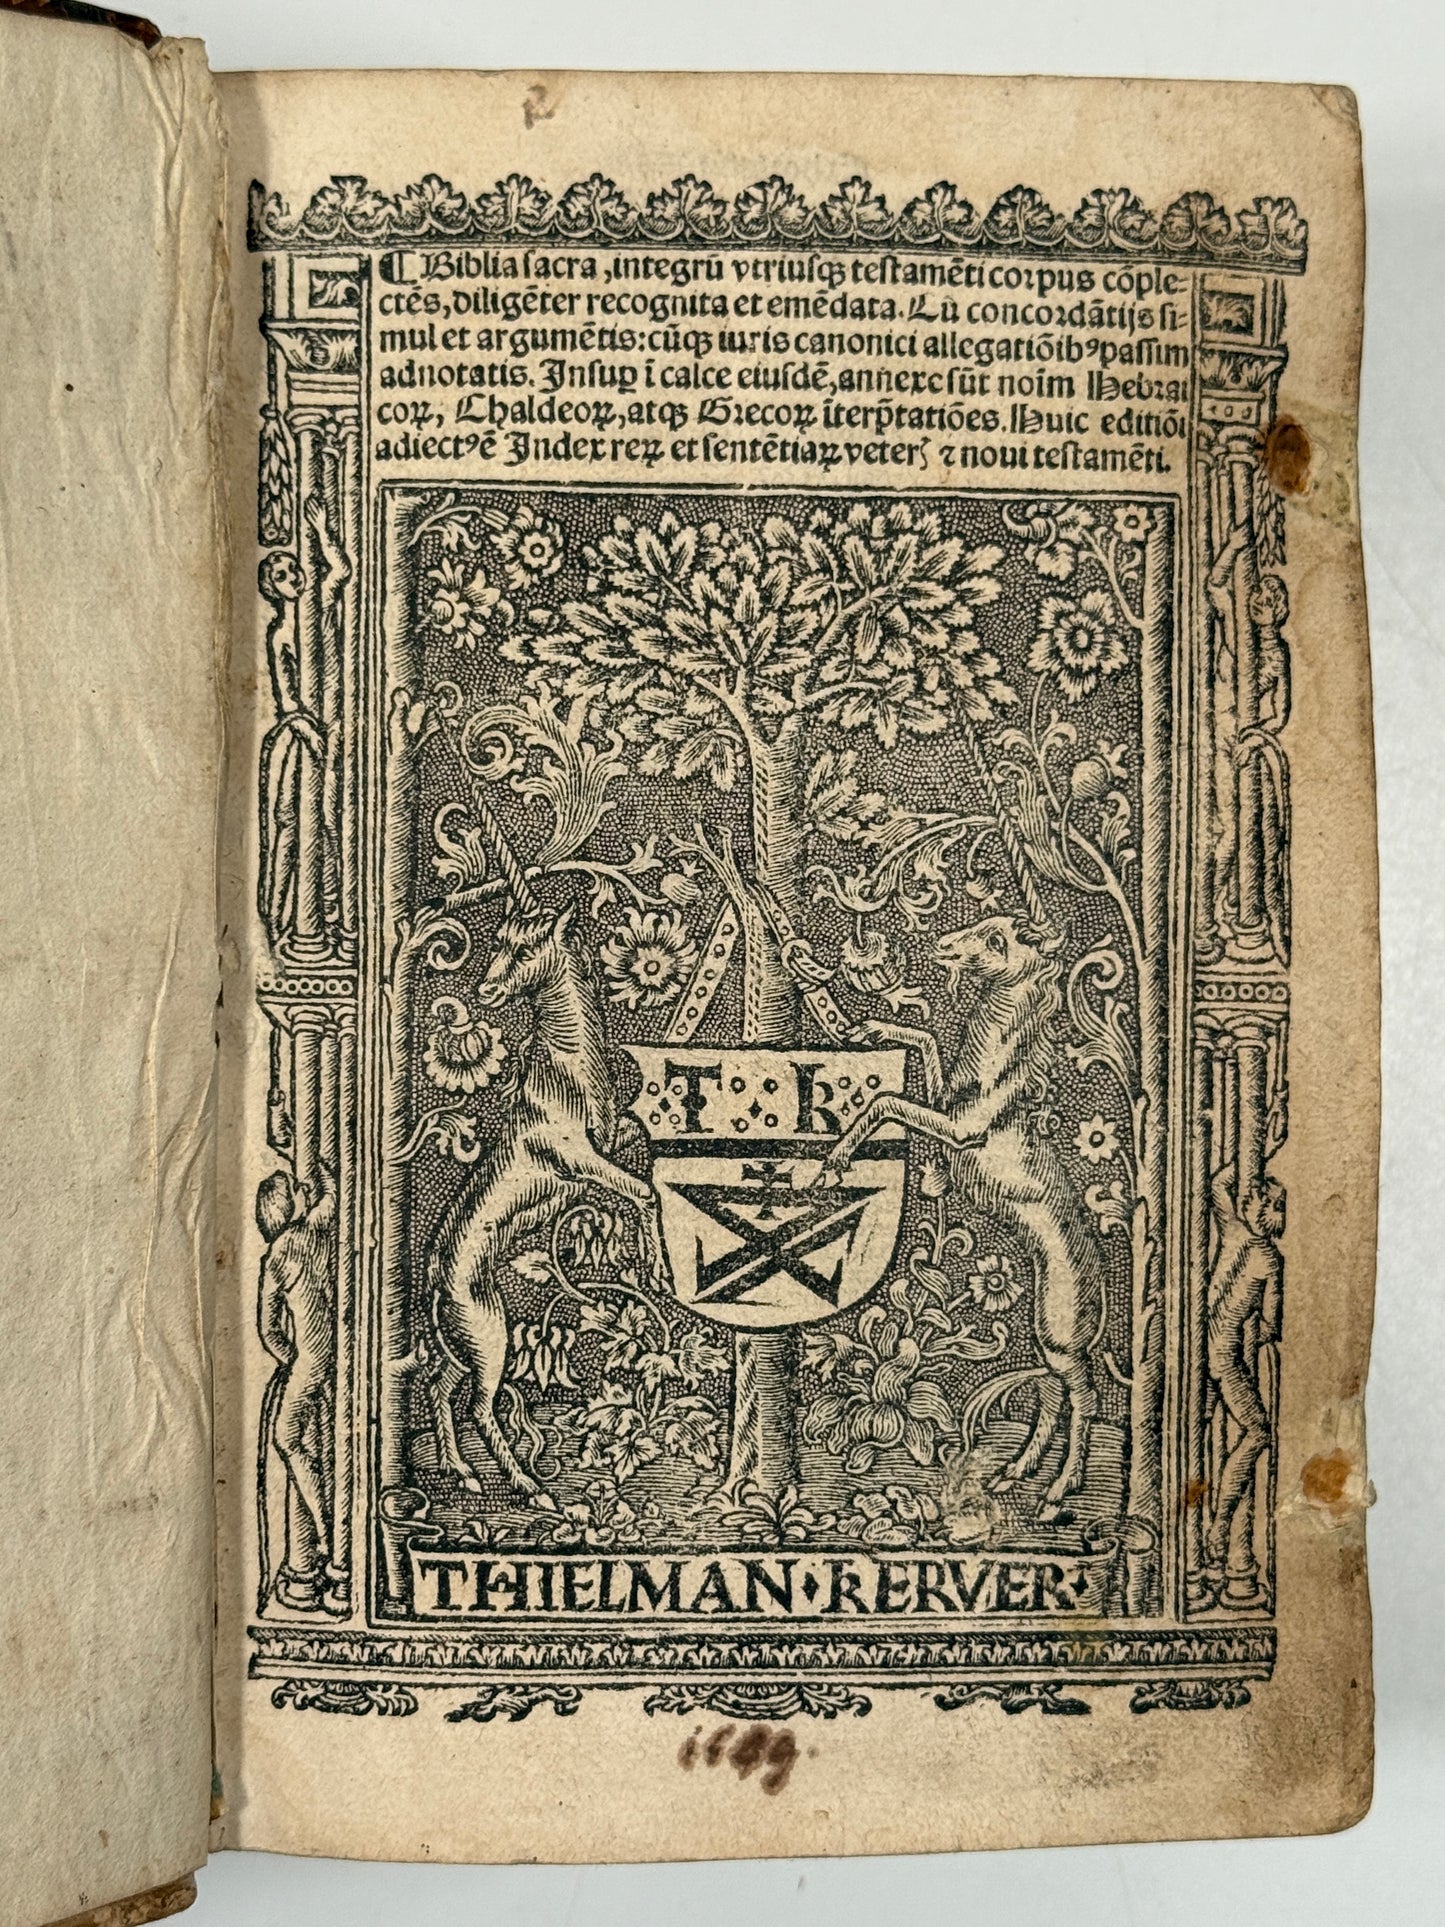 ¶Biblia sacra, integrũ vtriusqꝫ testamẽti corpus cõple⸗
ctẽs, diligẽter recognita et emẽdata. Cũ concordãtijs si⸗
mul et argumẽtis: cũqꝫ iuris canonici allegatiõibꝰ passim
adnotatis. Insuꝑ ĩ calce eiusdẽ, annexe sũt noĩm Hebrai
coꝝ, Chaldeoꝝ, atqꝫ Grecoꝝ ĩterp̃tatiões. Huic editiõi
adiectꝰ ẽ Index reꝝ et sentẽtiaꝝ veterꝭ ⁊ noui testamẽti.
T K
THIELMAN·KERVER·